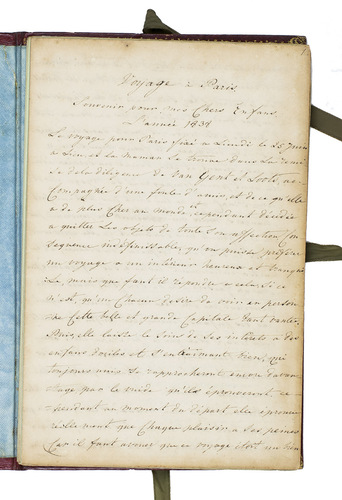 Voyage à Paris
Souvenir pour mes Chers Enfans
L'année 1834
Le voyage pour Paris fixé a Lundi le 25 Juin
a Lieu, et la Maman se trouve dans la
de la diligence de Van Gent et Loots, ac=
Compagnée d'une foule d'amis, et de ce qu'elle
a de plus Cher au monde, cependant décidée
a quitter les objets de toute son affection
indispensable, qu'on puisse préférer
un voyage a un intérieur heureux et tranquil
le, mais que faut il répondre a cela, Si ce
n'est, qu'un Chacun desire de voir en person
ne Cette belle et grande Capitale tant vantée.
Puis, elle laisse le soin de ses intérets a des
enfans dociles et S'entr'aimant bien, qui
toujours unis se rapprocheront encore davan
tage par le vuide qu'ils éprouveront, ce=
pendant au moment du départ elle éprouve
réellement que Chaque plaisir a ses peines
Car il faut avouer que ce voyage étoit un bien